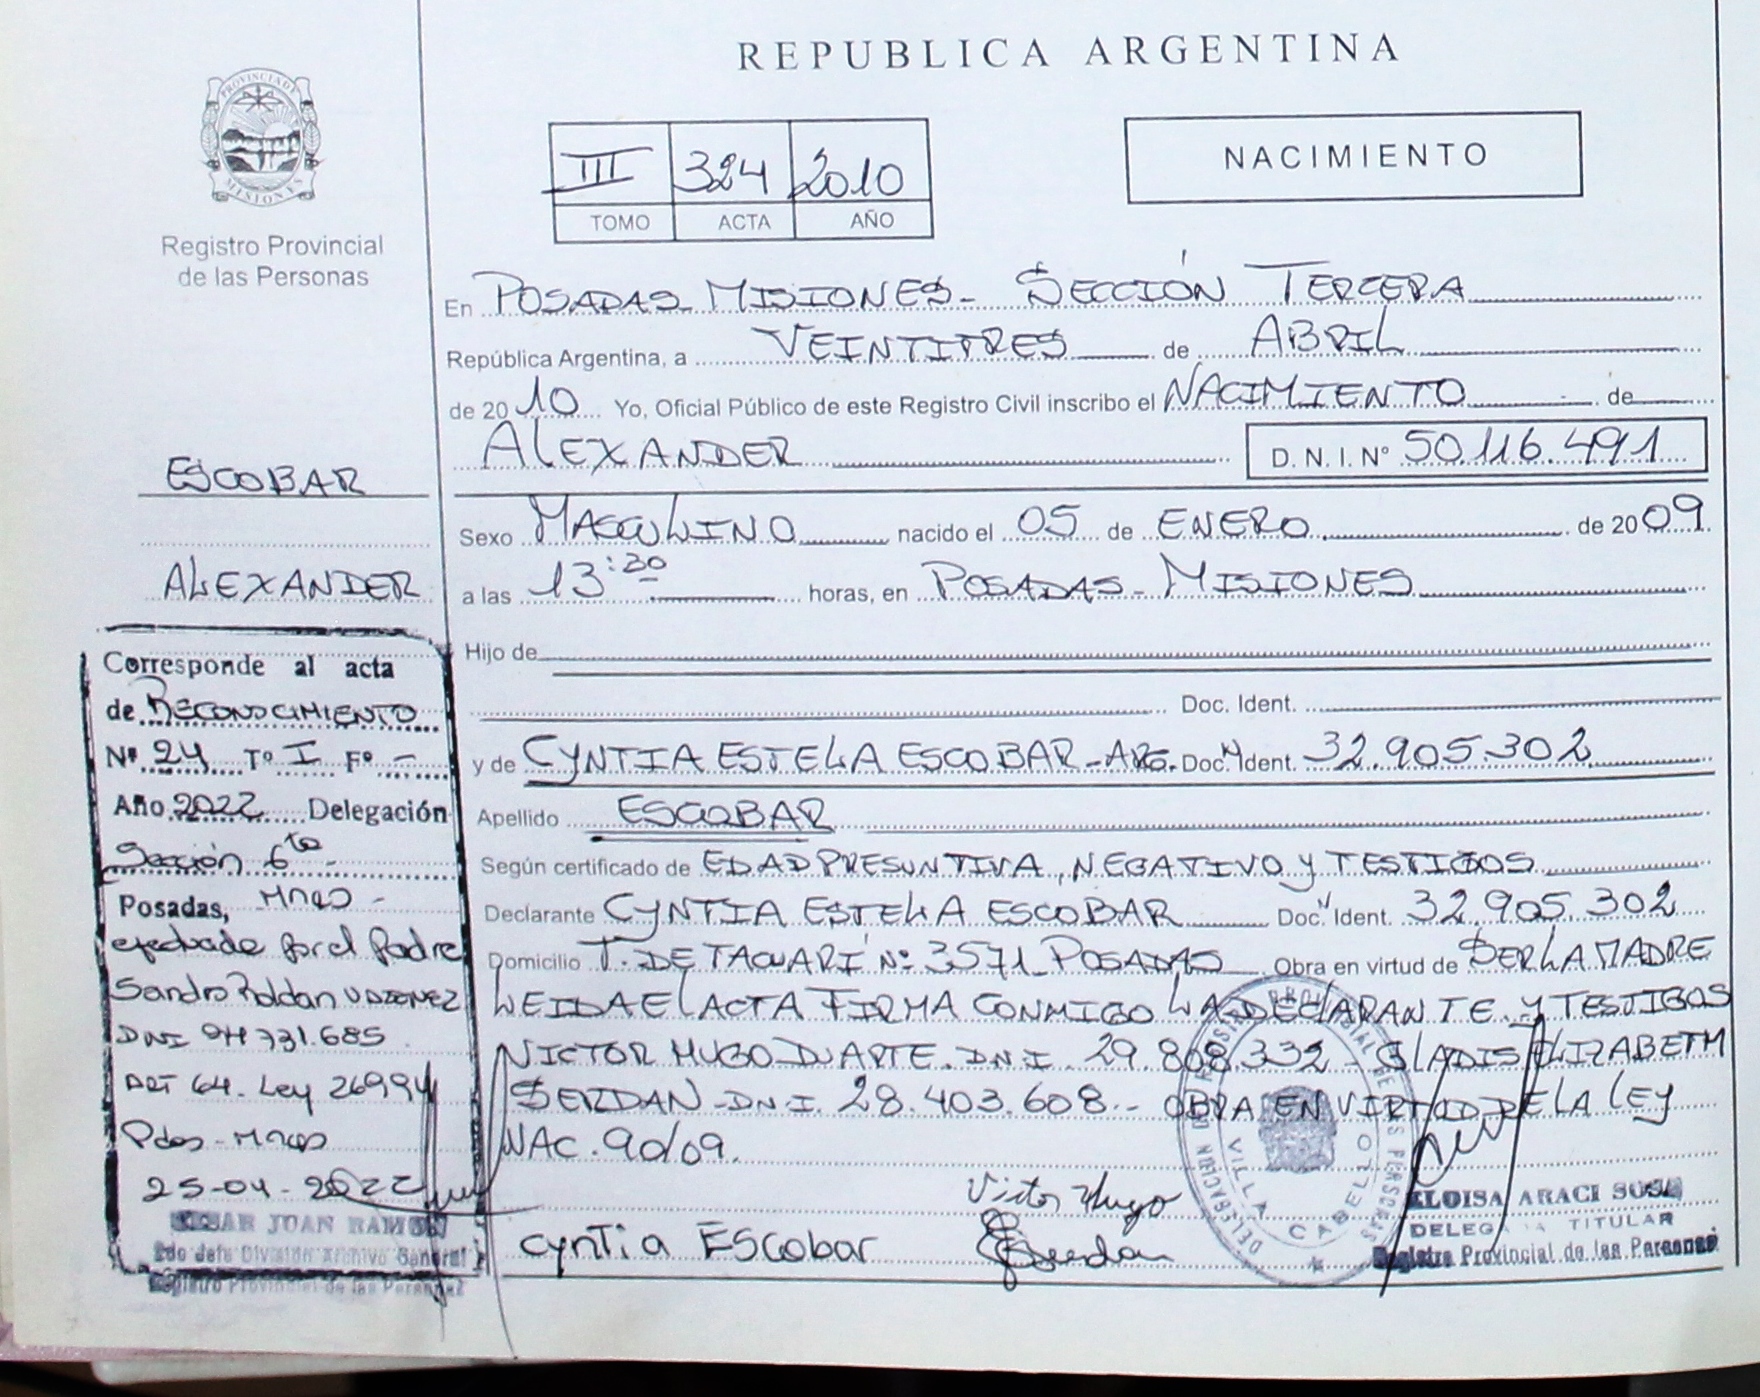 REPUBLICA ARGENTINA
PROVINCIA DE
MISIONES
Registro Provincial
de las Personas
III 324 2010
TOMO ACTA AÑO
NACIMIENTO
En POSADAS - MISIONES - SECCIÓN TERCERA
República Argentina, a VEINTITRES de ABRIL
de 20 10 Yo, Oficial Público de este Registro Civil inscribo el NACIMIENTO de
ALEXANDER D. N. I. N° 50.116.491
Sexo MASCULINO nacido el 05 de ENERO de 20 09
a las 13:30 horas, en POSADAS - MISIONES
Hijo de
Doc. Ident.
y de CYNTIA ESTELA ESCOBAR - ARG. Doc. Ident. 32.905.302
Apellido ESCOBAR
Según certificado de EDAD PRESUNTIVA, NEGATIVO Y TESTIGOS
Declarante CYNTIA ESTELA ESCOBAR Doc. Ident. 32.905.302
Domicilio T. DE TACUARÍ Nº 3571 - POSADAS Obra en virtud de SER LA MADRE
LEIDA EL ACTA FIRMA CONMIGO LA DECLARANTE Y TESTIGOS
VICTOR HUGO DUARTE. D.N.I. 29.808.332 - GLADIS ELIZABETH
SERDAN - D.N.I. 28.403.608 - OBRA EN VIRTUD DE LA LEY
NAC. 90/09.
Victor Hugo
cynTia EScobar
Serdan
DELEGACION
VILLA CABELLO
ELOISA ARACI SOSA
DELEGADA TITULAR
Registro Provincial de las Personas
ESCOBAR
ALEXANDER
Corresponde al acta
de RECONOCIMIENTO
Nº 24 Tº I Fº -
Año 2022 Delegación
Sección 6ta -
Posadas, Mnes -
efectuado por el padre
Sandro Roldan
DNI 94 731.685
ART 64. Ley 26994
Pdas - Mnes
25-04-2022
JUAN RAMON
2do Jefe División Archivo General
Registro Provincial de las Personas